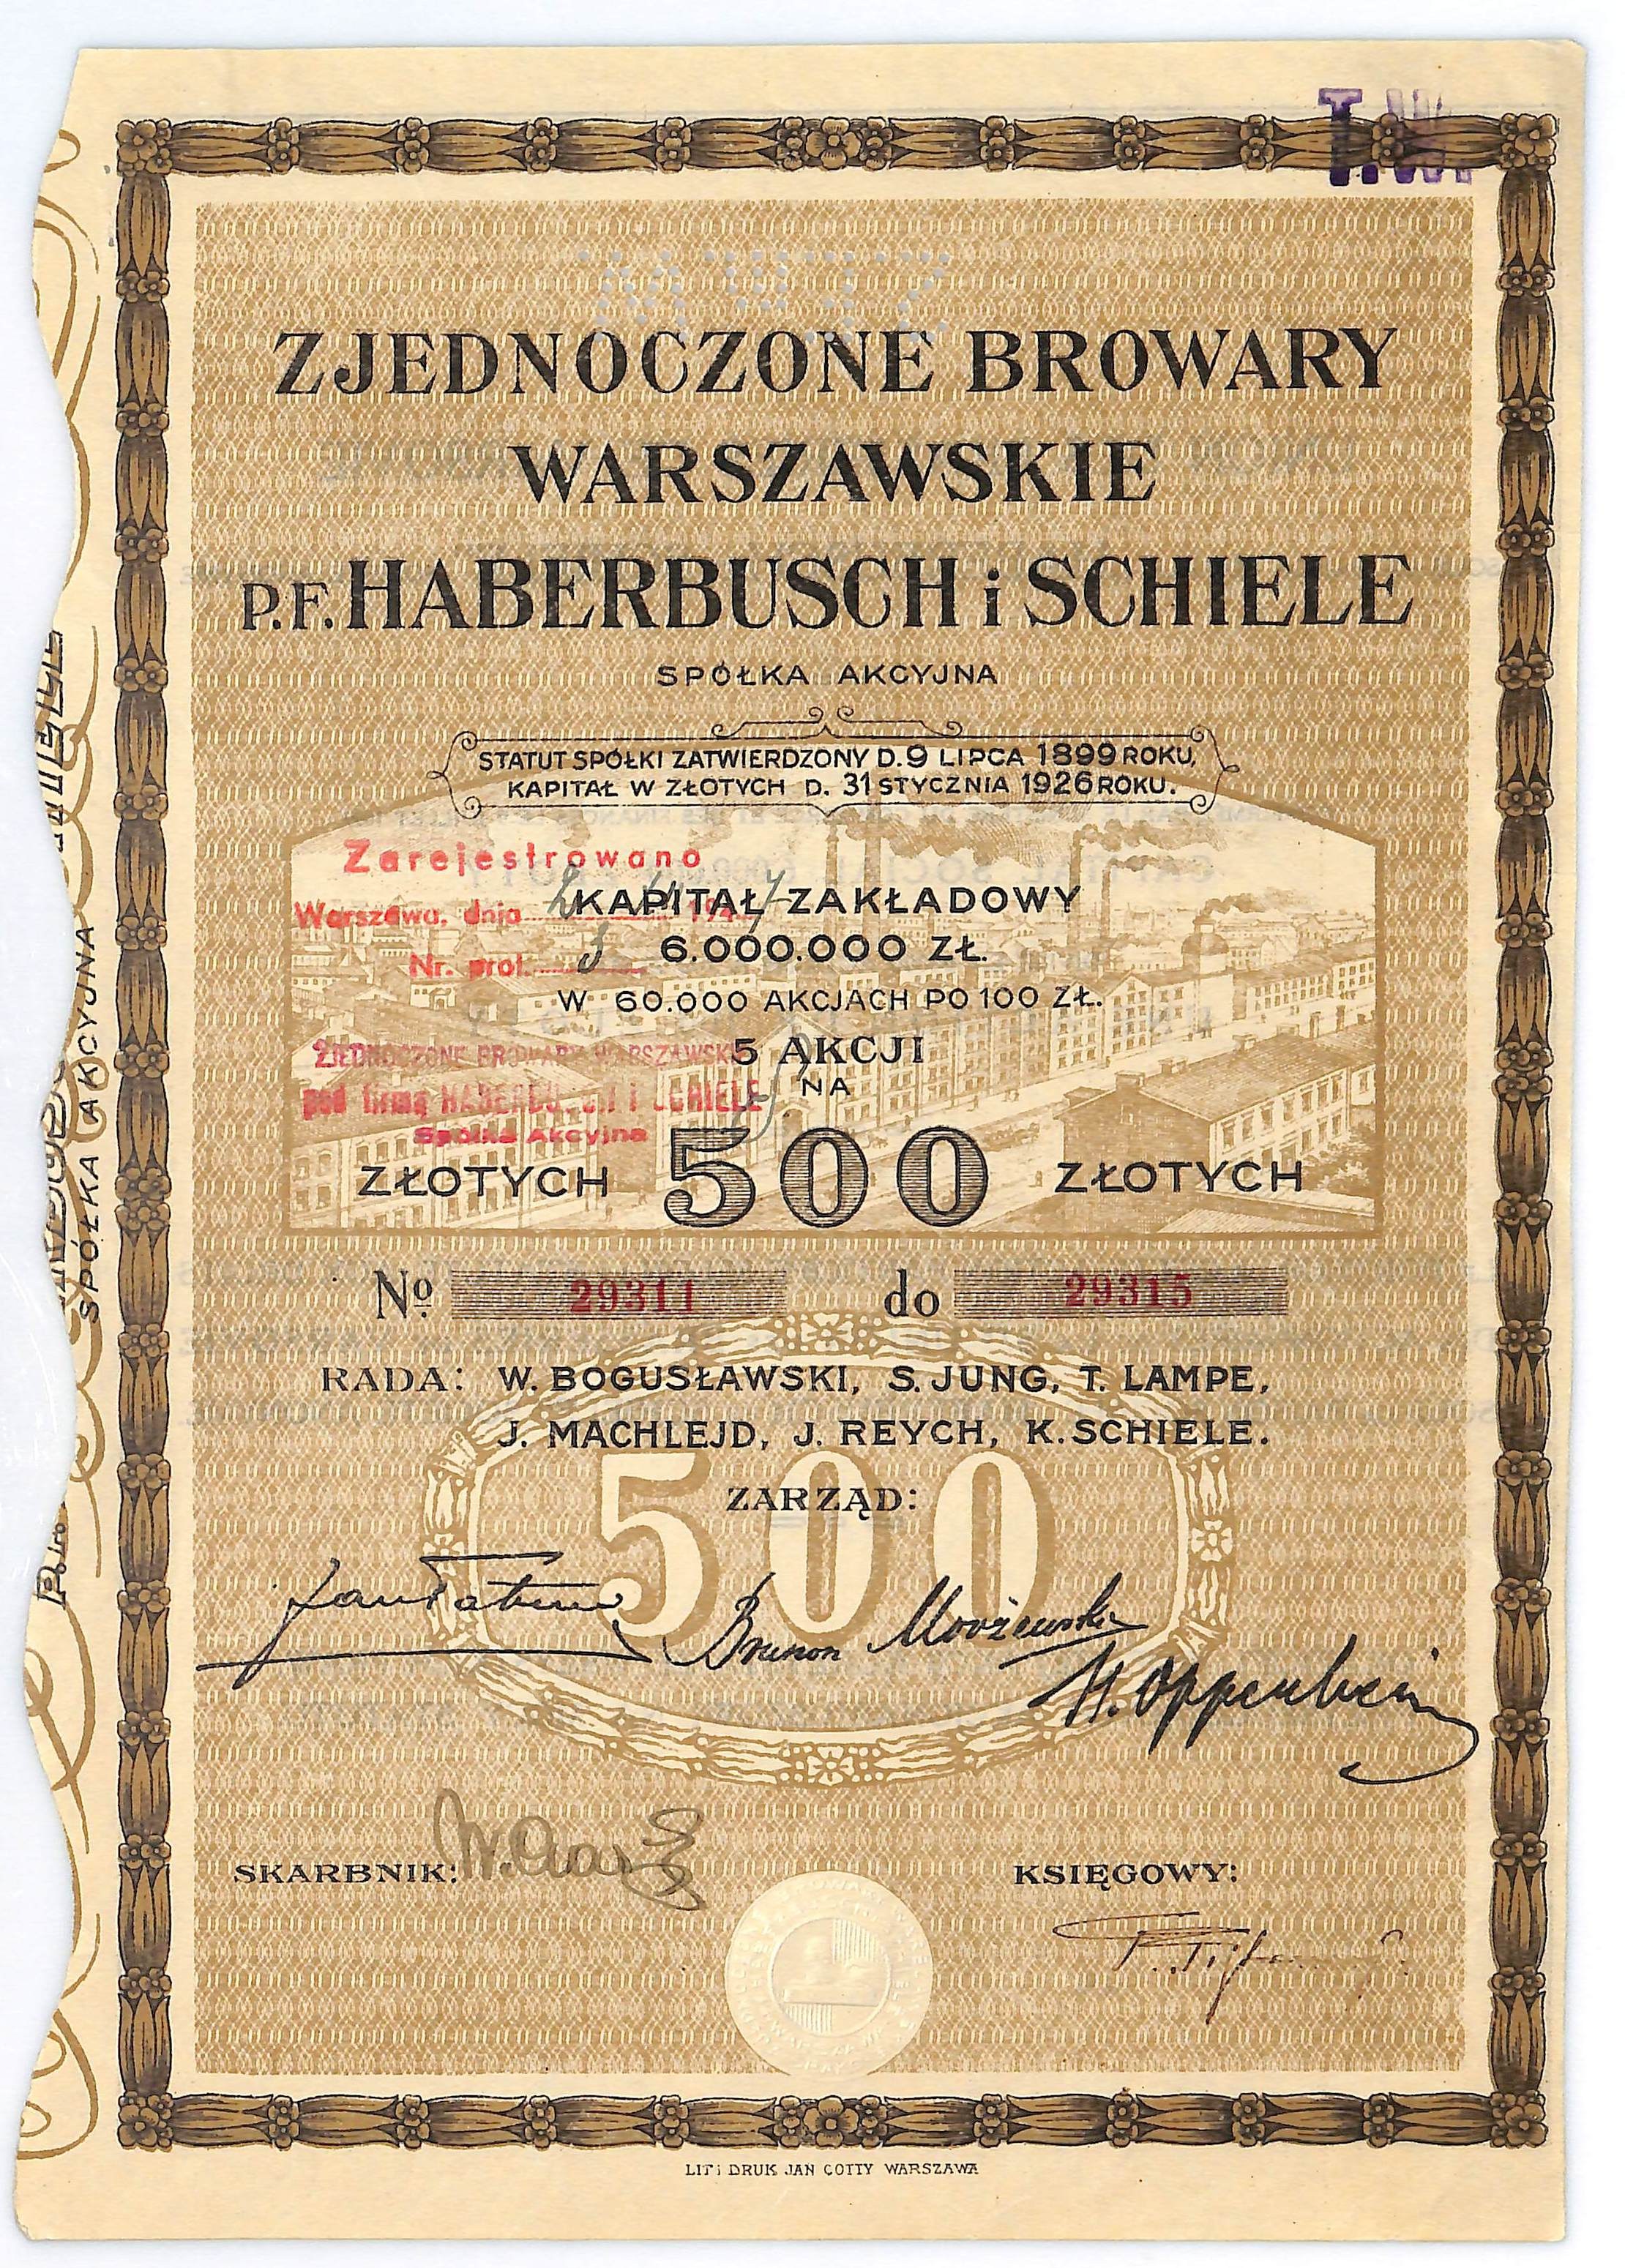 T.W.
ZJEDNOCZONE BROWARY
WARSZAWSKIE
P.F. HABERBUSCH i SCHIELE
SPÓŁKA AKCYJNA
STATUT SPÓŁKI ZATWIERDZONY D. 9 LIPCA 1899 ROKU,
KAPITAŁ W ZŁOTYCH D. 31 STYCZNIA 1926 ROKU.
Zarejestrowano
Warszawa, dnia
Nr. prot.
KAPITAŁ ZAKŁADOWY
6.000.000 ZŁ.
W 60.000 AKCJACH PO 100 ZŁ.
ZJEDNOCZONE BROWARY WARSZAWSKIE
pod firmą HABERBUSCH i SCHIELE
Spółka Akcyjna
5 AKCJI
NA
ZŁOTYCH 500 ZŁOTYCH
№ 29311 do 29315
RADA: W. BOGUSŁAWSKI, S. JUNG, T. LAMPE,
J. MACHLEJD, J. REYCH, K. SCHIELE.
500
ZARZĄD:
Brunon
H. Oppenheim
SKARBNIK:
KSIĘGOWY:
LIT i DRUK JAN COTTY WARSZAWA
SPÓŁKA AKCYJNA